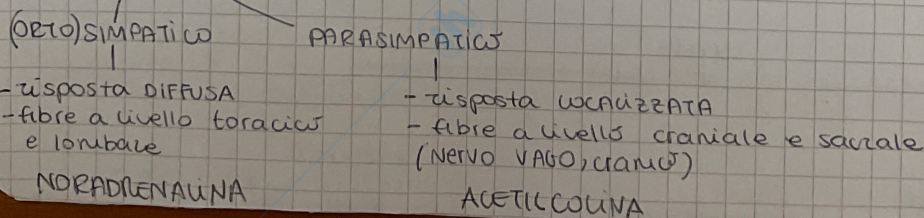 (ORTO)SIMPATICO
- risposta DIFFUSA
- fibre a livello toracico
e lombare
NORADRENALINA
PARASIMPATICO
- risposta LOCALIZZATA
- fibre a livello craniale e sacrale
(Nervo VAGO, cranico)
ACETILCOLINA